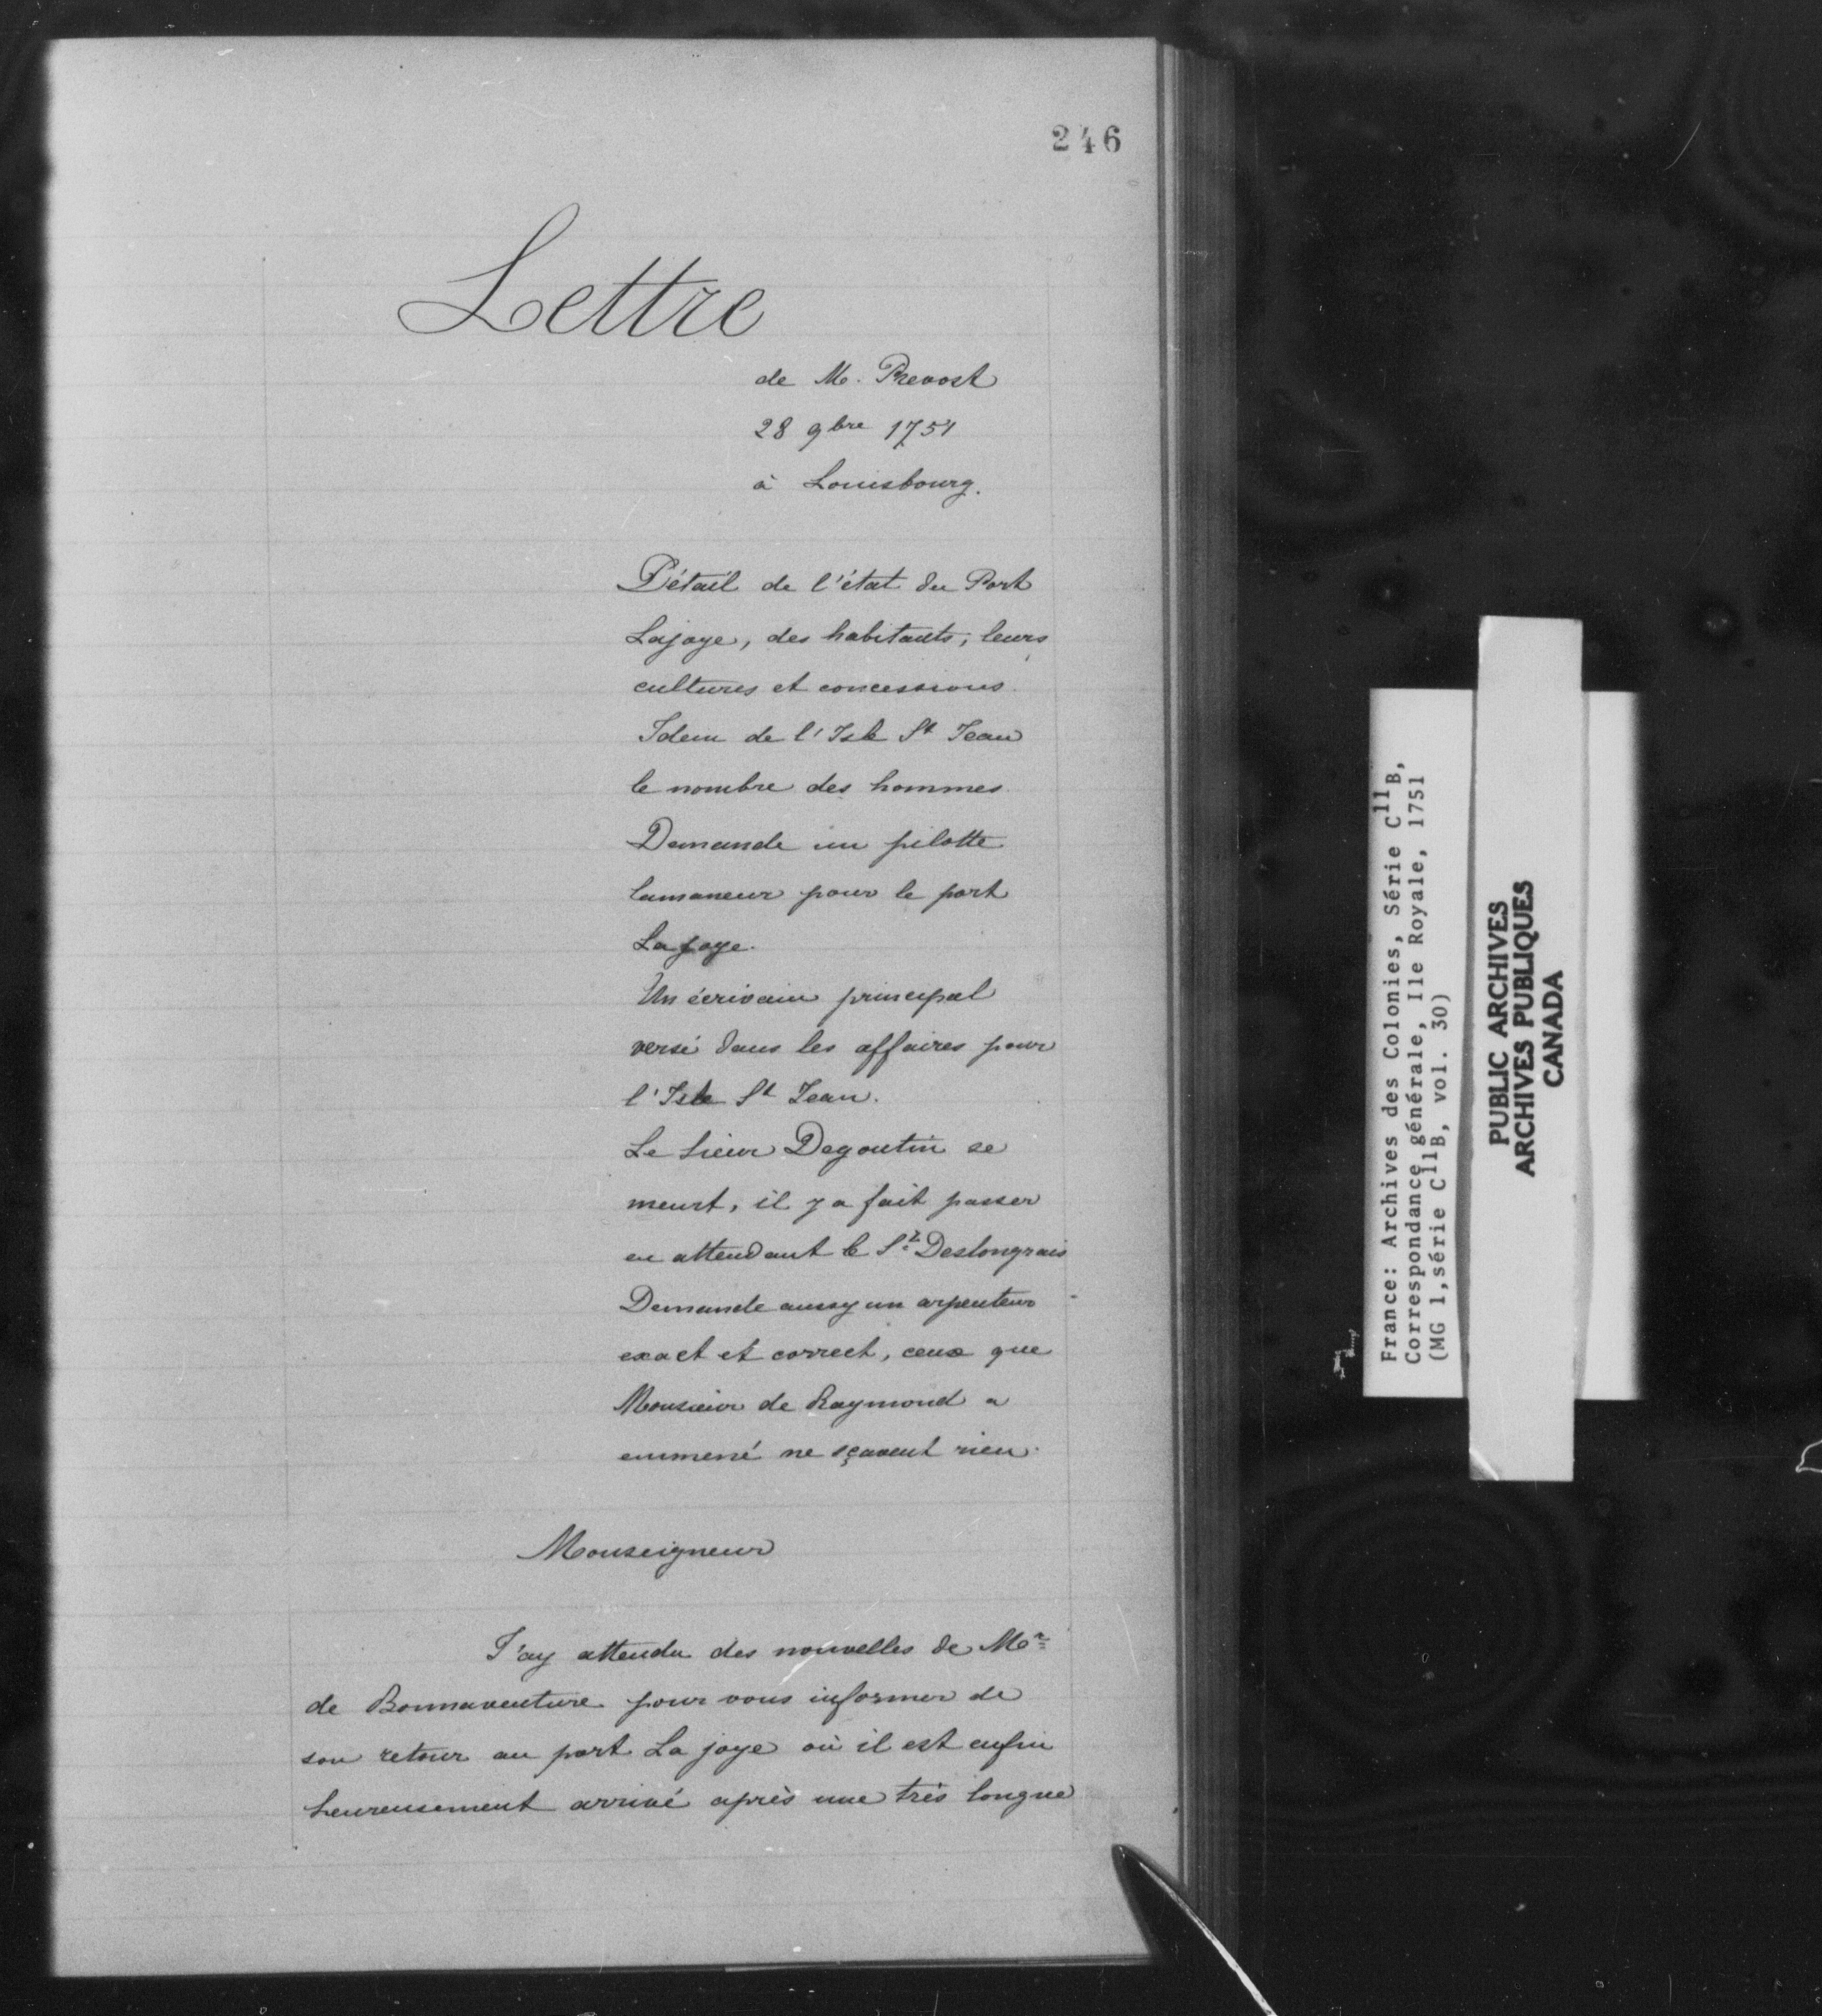 246
Lettre
de M. Prevost
28 9bre 1751
à Louisbourg.
Détail de l'état du Port
Lajoye, des habitants, leurs
cultures et concessions
Idem de l'Isle St Jean
le nombre des hommes
Demande un pilotte
lamaneur pour le port
La joye.
Un écrivain principal
versé dans les affaires pour
l'Isle St Jean.
Le Sieur Degoutin se
meurt, il y a fait passer
en attendant le Sr Deslongrais
Demande aussy un arpenteur
exact et correct, ceux que
Monsieur de Raymond a
emmené ne sçavent rien.
Monseigneur
J'ay attendu des nouvelles de Mr
de Bonnaventure pour vous informer de
son retour au port La joye où il est enfin
heureusement arrivé après une très longue
France: Archives des Colonies, Série C11B,
Correspondance générale, Ile Royale, 1751
(MG 1,série C11B, vol. 30)
PUBLIC ARCHIVES
ARCHIVES PUBLIQUES
CANADA